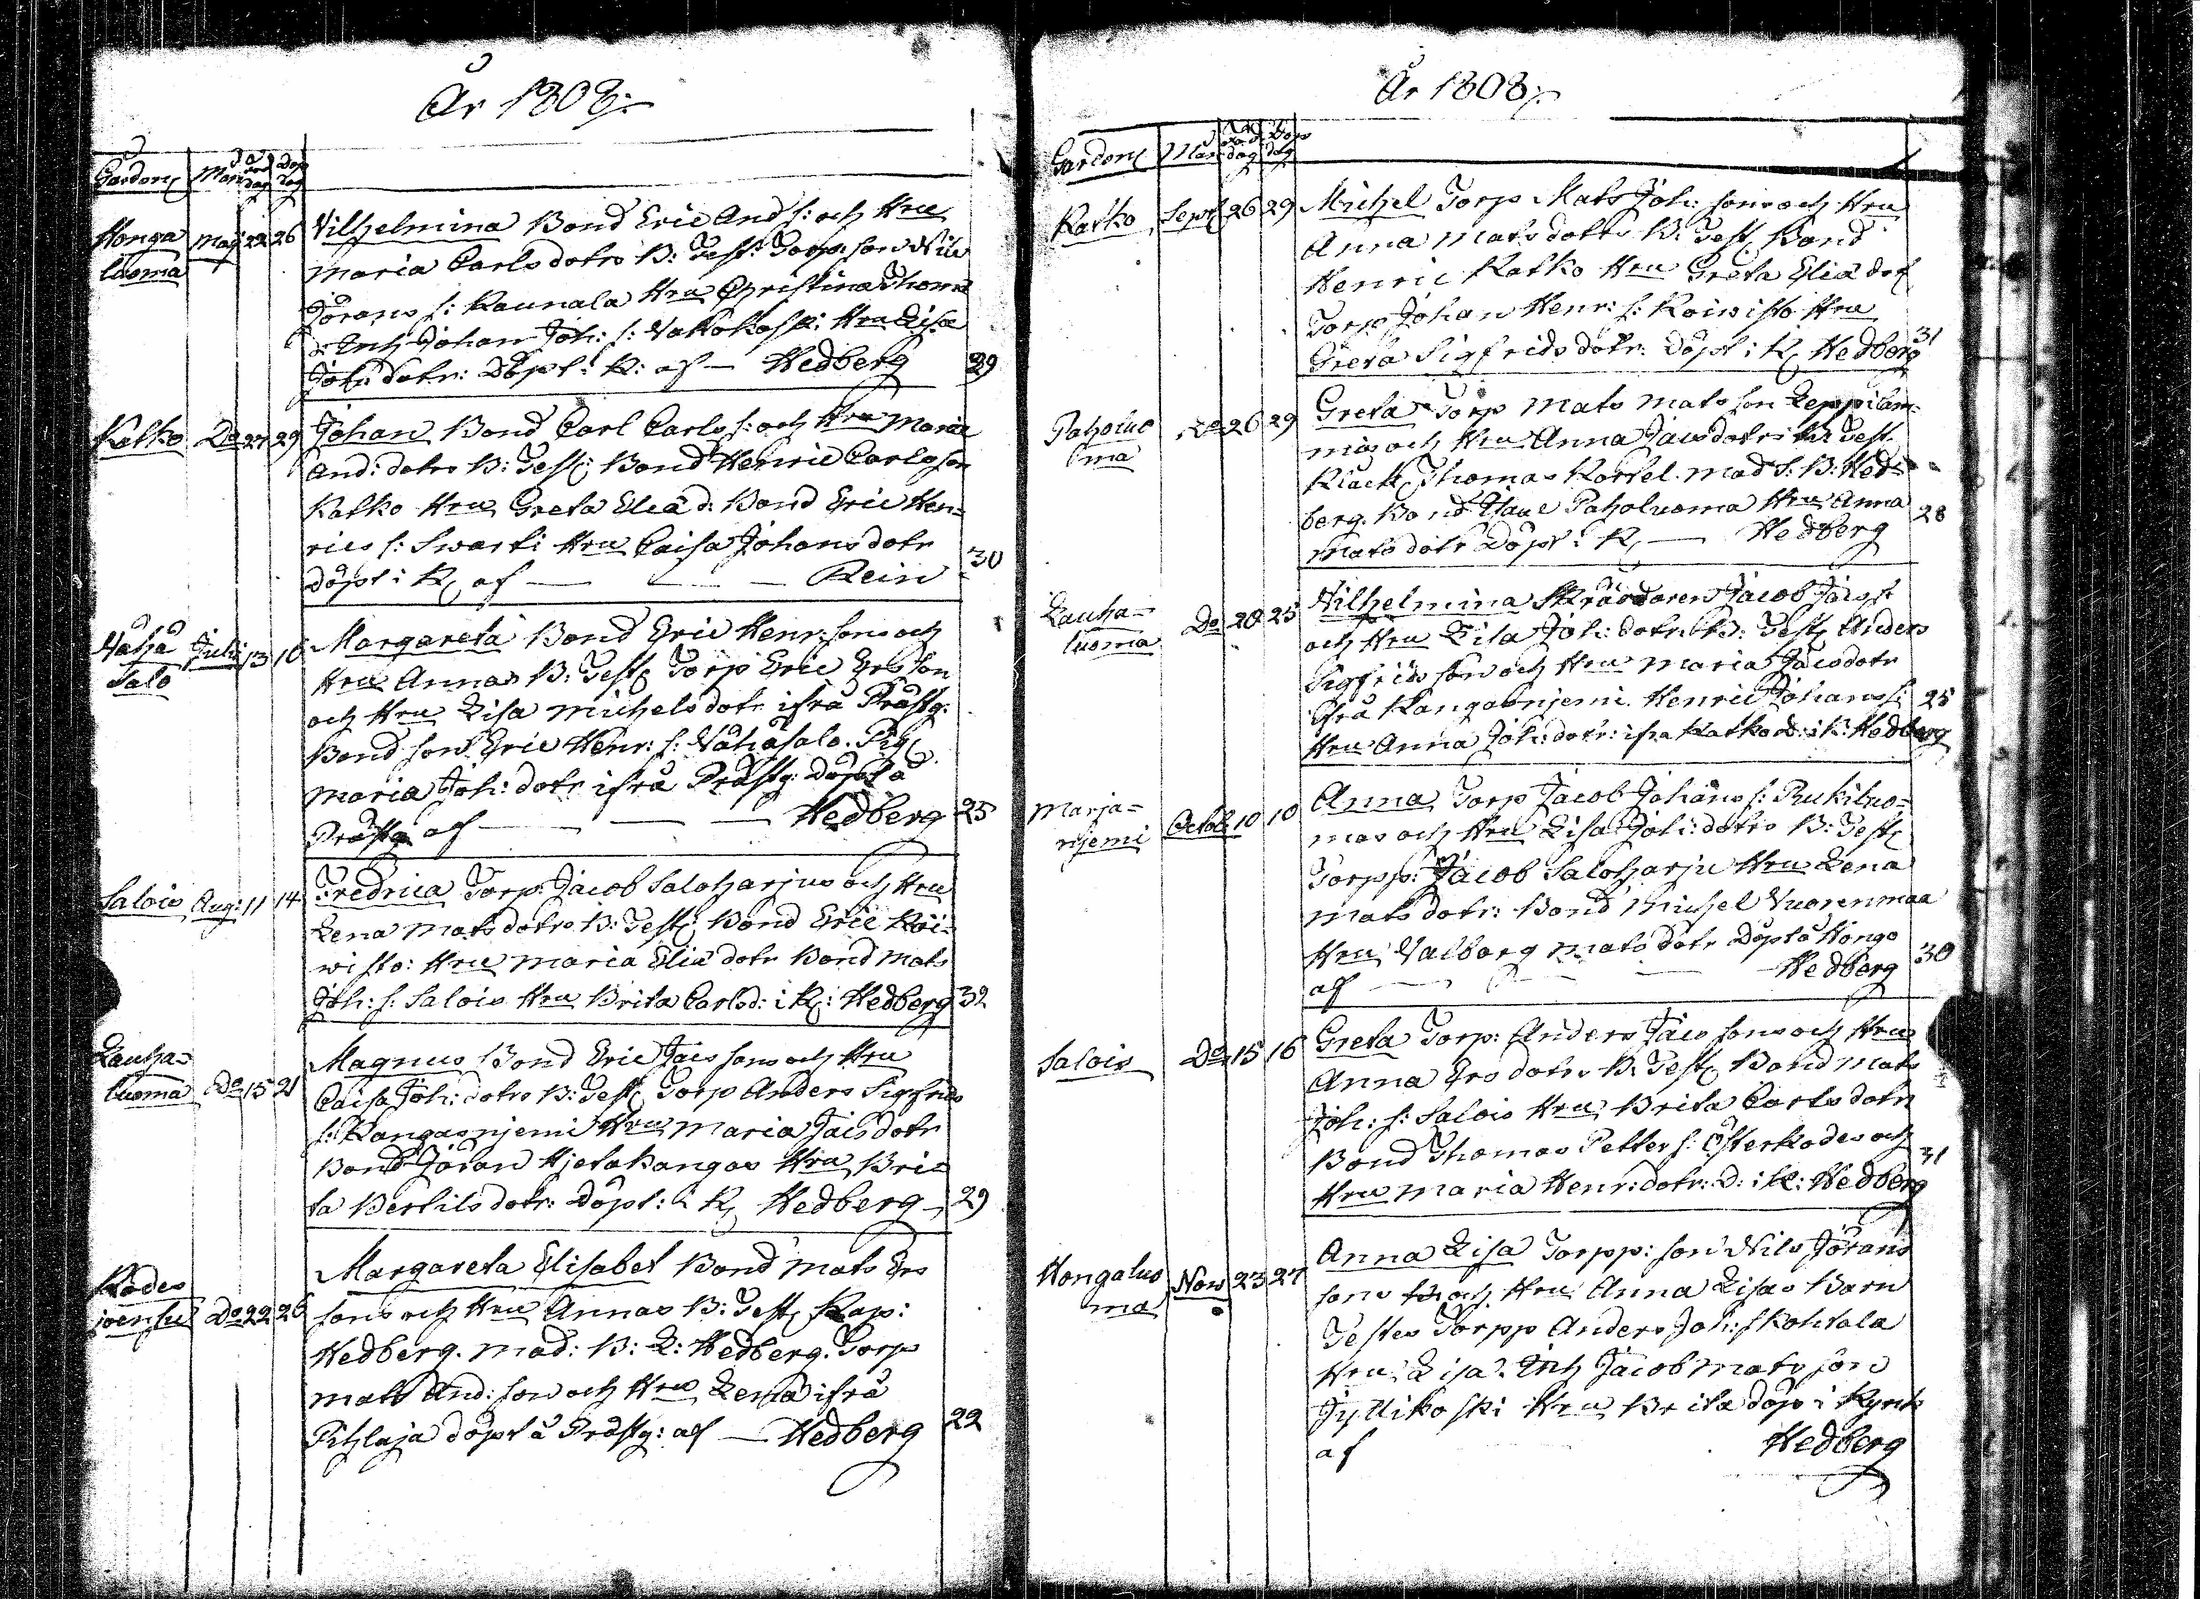 År 1808.
Gårdens Mån Föd dag Döp dag
Honga luoma Maij 22 26 Vilhelmina Bond Eric And s: och Hru
Maria Carls dotrs B: Test: Torp. son Nils
Jörans s: Kaunala Hru Christina Thoms
d: Enk Johan Joh: s: Vatkoski Hru Lisa
Joh: dotr: Döpt i K: af — Hedberg 29
Katko Do 27 29 Johan Bond Carl Carls s: och Hru Maria
And: dotrs B: Test: Bond Henric Carlsson
Katko Hru Greta Eliæ d: Bond Eric Hen=
rics s: Swarti Hru Caisa Johans dotr
döpt i K, af — — Rein 30
Vähä salo Julii 13 16 Margareta Bond Eric Henr: sons och
Hru Annas B: Test, Torp Eric Ersson
och Hru Lisa Michels dotr ifrå Prästg:
Bond son Eric Henr: s: Vähäsalo. Pig,
Maria Joh: dotr ifrå Prästg: döpt å
Prästg af — — — Hedberg 25
Salois Aug: 11 14 Fredrica Torp: Jacob Saloharjus och Hru
Lena Mats dotrs B: Test, Bond Eric Koi=
wisto: Hru Maria Eliæ dotr Bond Mats
Joh: s: Salois Hru Brita Carlsd: i K: Hedberg 32
Lauha= luoma Do 15 21 Magnus Bond Eric Jacs sons och Hru
Caisa Joh: dotrs B: Test, Torp Anders Sigfrids
s: Kangasnjemi Hru Maria Jacs dotr
Bond Jöran Hjetakangas Hru Bri=
ta Bertils dotr: Döpt: i K, Hedberg — 29
Kodes joensu Do 22 26 Margareta Elisabet Bond Mats Ers
sons och Hru Annas B: Test, Kap:
Hedberg. Mad: B: L: Hedberg. Torp
Mats And: son och Hru Lena ifrå
Pihlaja döpt å Prästg: af — Hedberg 22
År 1808.
Gårdens Mån Föd dag Döp dag
Katko Sept 26 29 Michel Torp Mats Joh: sons och Hru
Anna Mats dotrs B: Test, Bond
Henric Katko Hru Greta Eliæ dot
Torp Johan Henr: s: Koiwisto Hru
Greta Sigfrids dotr: Döpt i K, Hedberg 31
Paholuo ma Do 26 29 Greta Torp Mats Mats son Leppilam=
mis och Hru Anna Jacs dotrs B: Test.
Klock, Thomas Mad S: B: Hed=
berg. Bond Paholuoma Hru Anna
Mats dotr Döpt i K, — Hedberg 28
Lauha= luoma Do 20 25 Vilhelmina Skräddaren Jacob Jacs s
och Hru Lisa Joh: dotrs B: Test, Anders
Sigfrids son och Hru Maria Jacs dotr
ifrå Kangasnjemi. Henric Johans s:
Hru Anna Joh: dotr: ifrå Katko d: i K: Hedberg 25
Marja= njemi Octob 10 10 Anna Torp Jacob Johans s: Rukiluo=
mas och Hru Lisa Joh: dotrs B: Test,
Torpp: Jacob Saloharju Hru Lena
Mats dotr: Bond Michel Vuorenmaa
Hru Valborg Mats dotr Döpt å Hongo
af — — Hedberg 30
Salois Do 15 16 Greta Torp: Anders Jacs sons och Hru
Anna Ers dotrs B: Test, Bond Mats
Joh: s: Salois Hru Brita Carls dotr
Bond Thomas Petter s: Österkodes och
Hru Maria Henr: dotr: D: i K: Hedberg 31
Hongaluo ma Nov 23 27 Anna Lisa Torpp: son Nils Jörans
sons och Hru Anna Lisas Barn
Testes Torpp Anders Joh: s Kohtala
Hru Lisa. Enk Jacob Mats son
Jyllikoski Hru Brita döp i Kyrk
af Hedberg